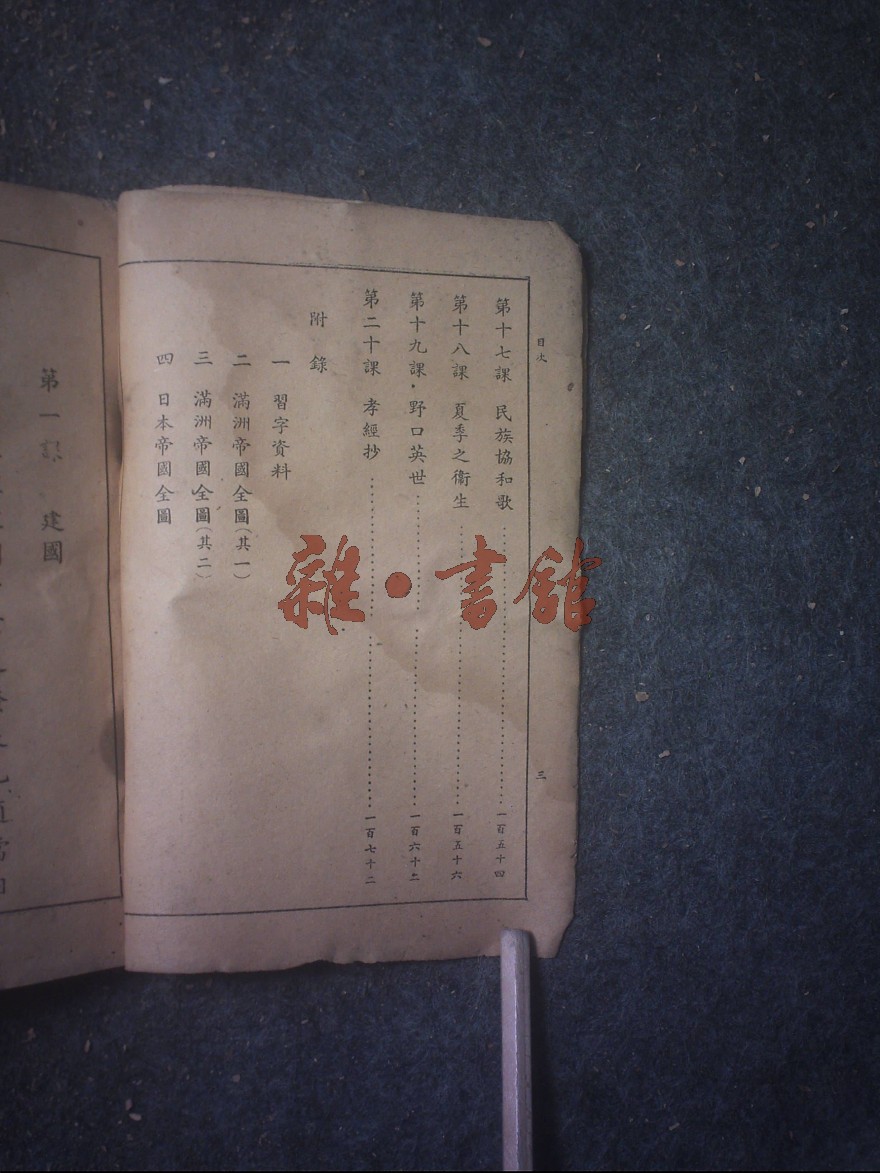 目次
三
第十七課 民族協和歌……一百五十四
第十八課 夏季之衞生……一百五十六
第十九課 野口英世……一百六十二
第二十課 孝經抄……一百七十二
附錄
一 習字資料
二 滿洲帝國全圖(其一)
三 滿洲帝國全圖(其二)
四 日本帝國全圖
第一課 建國
雜·書館